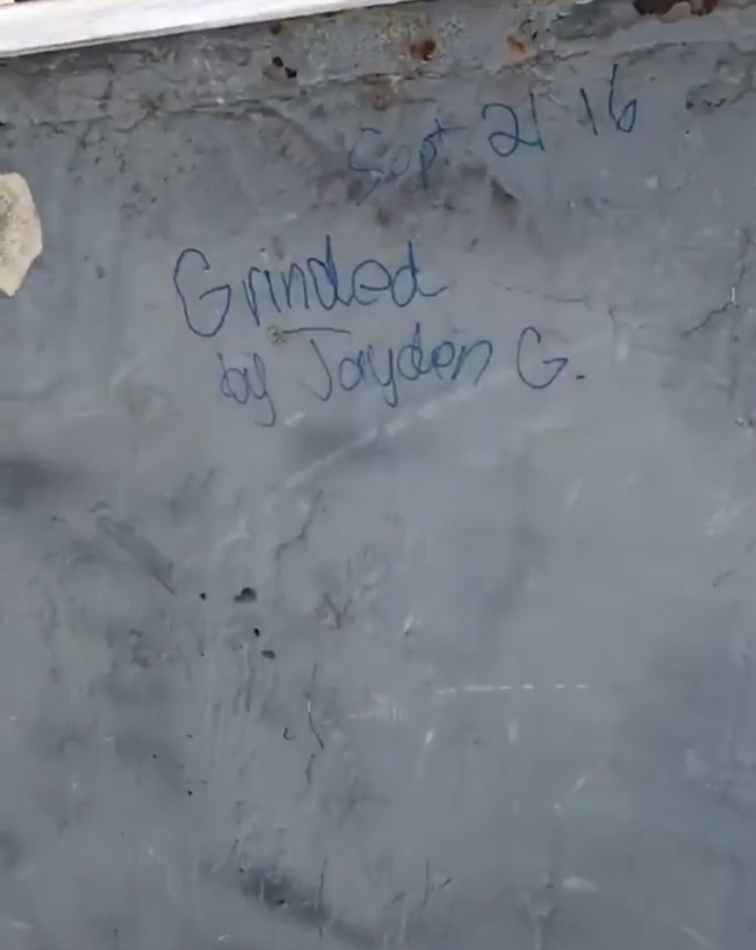 Sept 21 16
Grinded
by Jayden G.